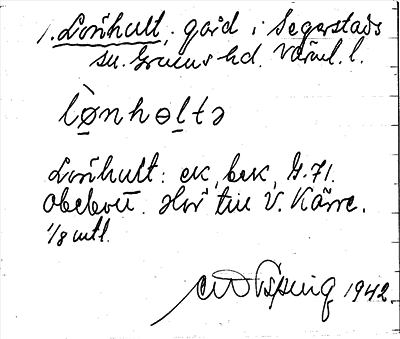 1. Lönhult, gård i Segerstads
sn. Grums hd. Värml. l.
lø̱nhɵḻtə
Lönhult: ek, bek, G. 71.
Obebott. Hör till V. Kärre.
1/8 mtl.
1942.